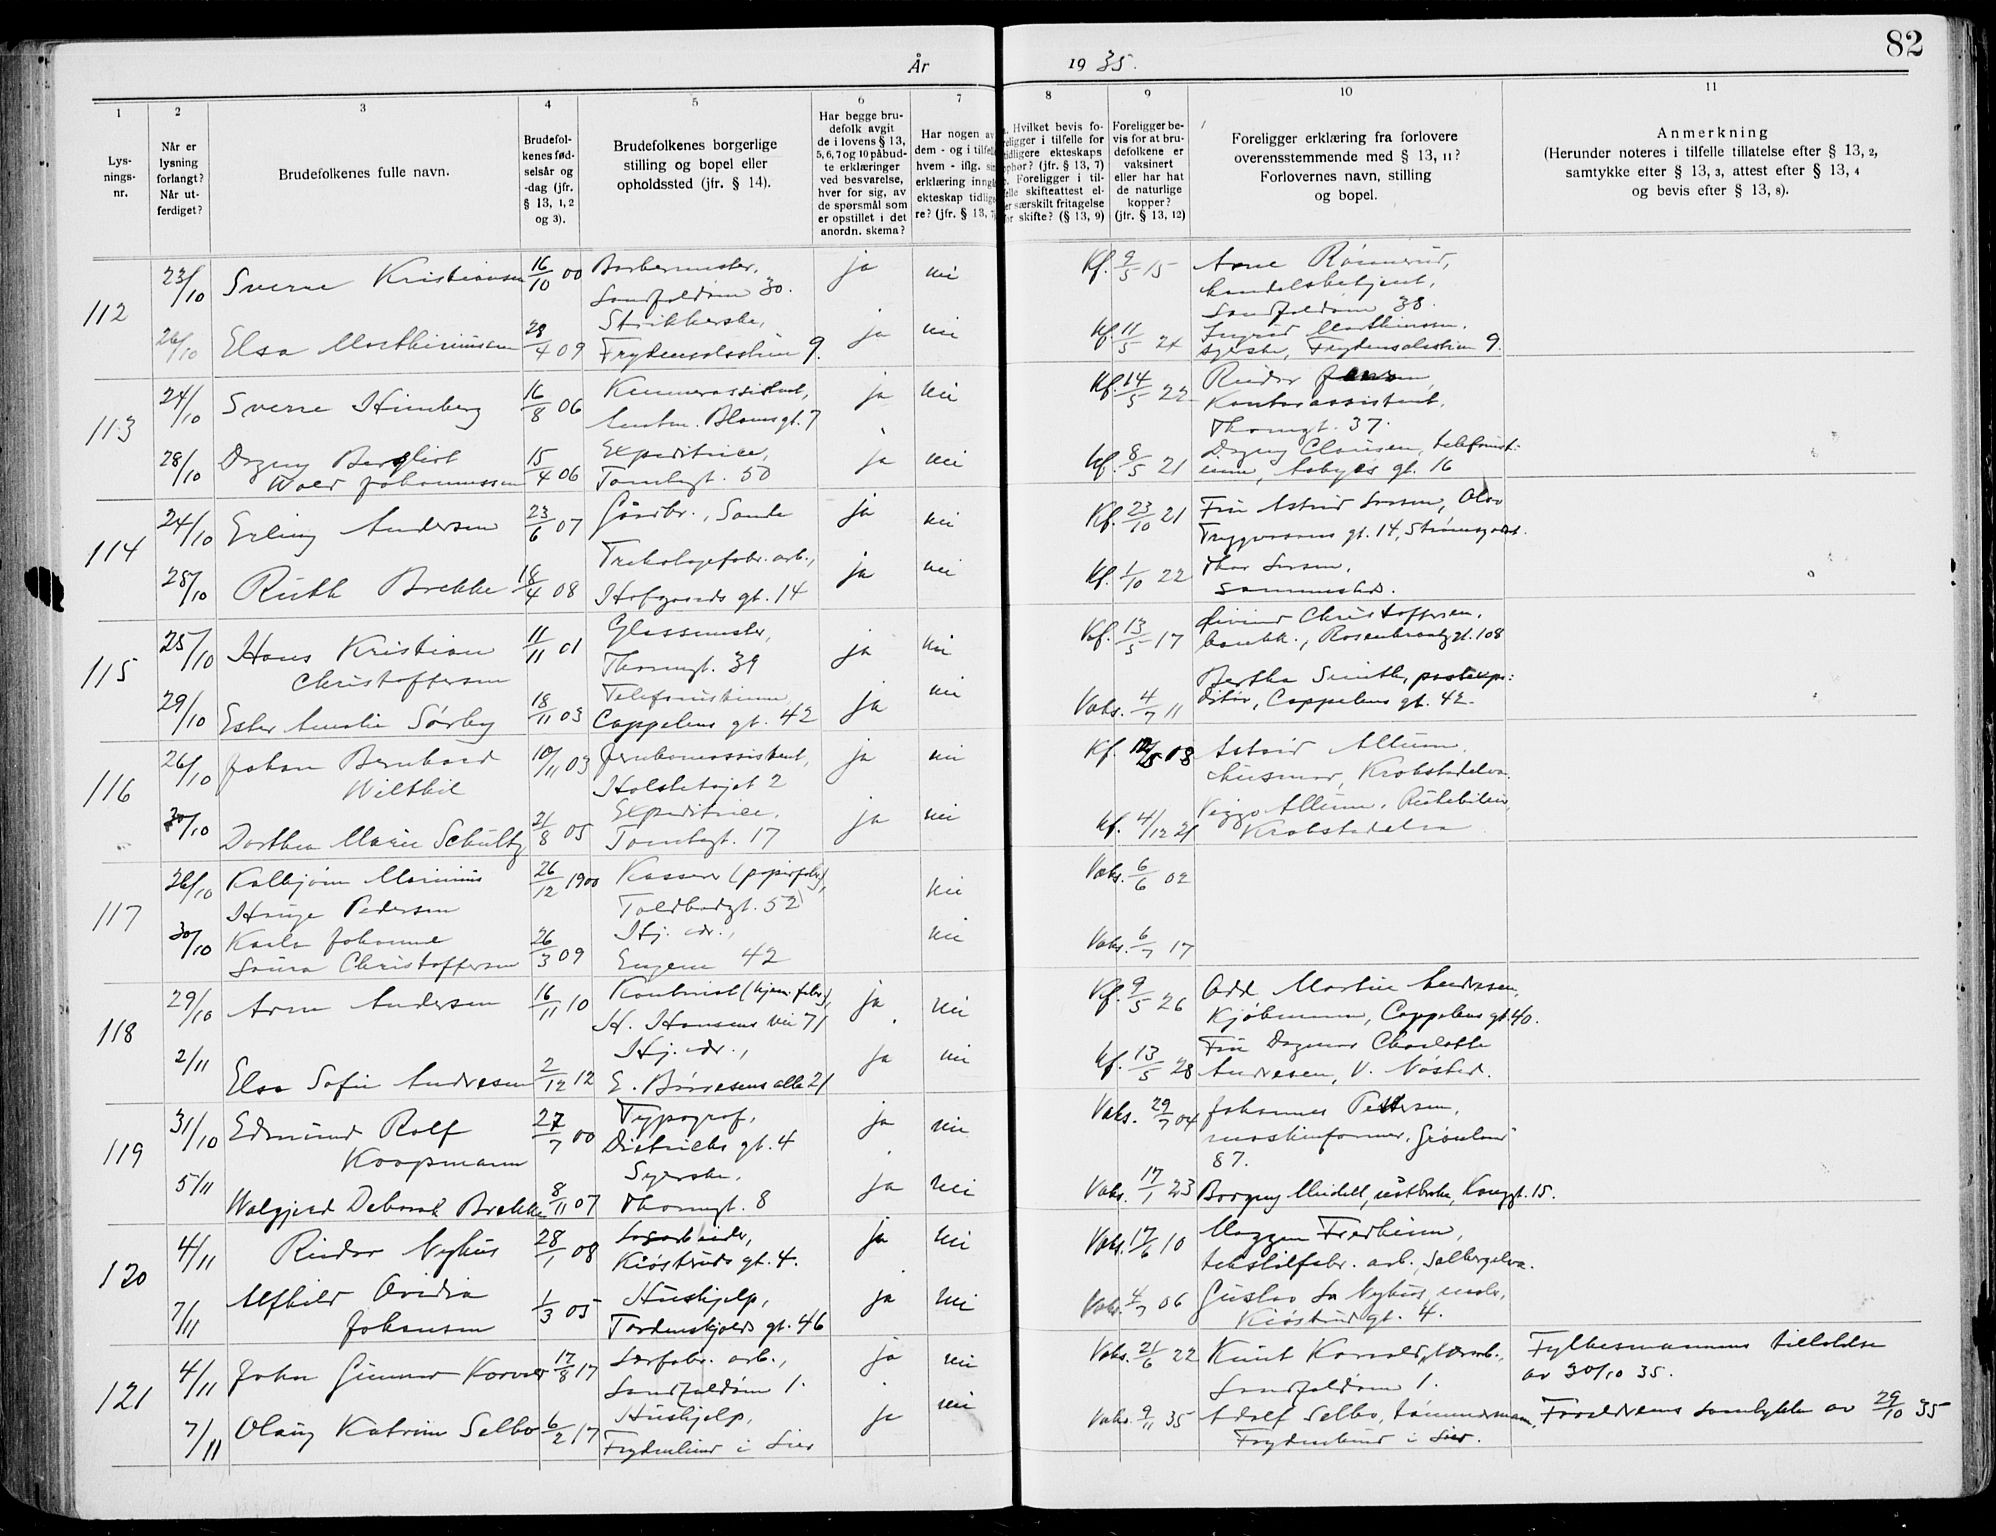 År 1935. 82
1 2 3 4 5 6 7 8 9 10 11
Lys-
nings-
nr.
Når er
lysning
forlangt?
Når ut-
ferdiget?
Brudefolkenes fulle navn.
Brudefol-
kenes fød-
selsår og
-dag (jfr.
§ 13, 1, 2
og 3).
Brudefolkenes borgerlige
stilling og bopel eller
opholdssted (jfr. § 14).
Har begge bru-
defolk avgit
de i lovens § 13,
5, 6, 7 og 10 påbud-
te erklæringer
ved besvarelse,
hver for sig, av
de spørsmål som
er opstillet i det
anordn. skema?
Har nogen av
dem - og i tilfelle
hvem - iflg. sin
erklæring inngå
ekteskap tidlige
re? (jfr. § 13, 7
Hvilket bevis fo-
religger i tilfelle for
tidligere ekteskaps
ophør? (jfr. § 13, 7)
Foreligger i til-
felle skifteattest el-
er særskilt fritagelse
for skifte? (§ 13, 9)
Foreligger be-
vis for at bru-
defolkene er
vaksinert
eller har hat
de naturlige
kopper?
(jfr. § 13, 12)
Foreligger erklæring fra forlovere
overensstemmende med § 13, 11?
Forlovernes navn, stilling
og bopel.
Anmerkning
(Herunder noteres i tilfelle tillatelse efter § 13, 2,
samtykke efter § 13, 3, attest efter § 13, 4
og bevis efter § 13, 8).
112 23/10 Sverre Kristiansen 16/10 00 Barbermester, ja nei Kf. 9/5 15 Arne Rønnerud,
30. handelsbetjent,
38.
26/10 Elsa Marthinussen 28/4 09 Strikkerske, ja nei Kf. 11/5 24 Ingrid Marthinussen.
9. syerske, 9.
113 24/10 Sverre Himberg 16/8 06 Kemnerassistent, ja nei Kf. 14/5 22 Reidar Jensen,
Blomsgt. 7 Kontorassistent,
Thornegt. 37.
28/10 Dagny Bergliot 15/4 06 Expeditrice, ja nei Kf. 8/5 21 Dagny Clausen, telefonist-
Wold Johannessen Tomtegt. 50 inne, gt. 16
114 24/10 Erling Andersen 23/6 07 Gårdbr., Sande ja nei Kf. 23/10 21 Fru Astrid Larsen, Olav
Tryggvasons gt. 14, Strømsgodset.
28/10 Ruth Brekke 18/4 08 Trikotagefabr. arb., ja nei Kf. 1/10 22 Thor Larsen,
Hofgaards gt. 14 sammesteds.
115 25/10 Hans Kristian 11/11 01 Glassmester, ja nei Kf. 13/5 17 Eivind Christoffersen,
Christoffersen Thornegt. 39 Rosenkrantzgt. 108
29/10 Ester Amalie Sørby 18/11 03 Telefonistinne ja nei Vaks. 4/7 11 Bertha Smith, postexpe-
Cappelens gt. 42 ditør, Cappelens gt. 42.
116 26/10 Johan Bernhard 10/11 03 Jernbaneassistent, ja nei Kf. 08 Astrid Allum,
2 husmor, Krokstadelva.
30/10 Dorthea Marie Schultz 21/8 05 Expeditrice, ja nei Kf. 4/12 21 Viggo Allum, Rutebileier,
Tomtegt. 17 Krokstadelva
117 26/10 Kolbjørn Marinius 26/12 1900 Kasserer (papirfabr.), nei Vaks. 6/6 02
Hauge Pedersen Toldbodgt. 52
30/10 Karla Johanne 26/3 09 Hj. vær., nei Vaks. 6/7 17
Laura Christoffersen Engene 42
118 29/10 Arne Andersen 16/11 10 Kontorist ja nei Kf. 9/5 26 Odd Martin Andresen,
H. Hansens vei 71 Kjøbmann, Cappelens gt. 40.
2/11 Elsa Sofie Andresen 2/12 12 Hj. vær., ja nei Kf. 13/5 28 Fru Dagmar Charlotte
E. Børresens alle 21 Andresen, V. Nøsted.
119 31/10 Edmund Rolf 27/7 00 Typograf, ja nei Vaks. 29/7 04 Johannes Pettersen,
Koopmann gt. 4 maskinformer, Grønland
87.
5/11 Walgjerd Deborah Brekke 8/11 07 Syerske, ja nei Vaks. 17/1 23 Borgny Meidell, Kongsgt. 15.
Thornegt. 8
120 4/11 Reidar Nyhus 28/1 08 Lagerarbeider, ja nei Vaks. 17/6 10 Maggen Fredheim,
Kiøsteruds gt. 4. tekstilfabr. arb., Solbergelva.
7/11 Alfhild Ovidia 1/3 05 Hushjelp, ja nei Vaks. 4/7 06 Gustav Nyhus, maler,
Johansen Tordenskjolds gt. 46 Kiøsterudgt. 4.
121 4/11 John Gunnar Korvald 17/8 17 Lærfabr. arb., ja nei Vaks. 21/6 22 Knut Korvald, Fylkesmannens tillatelse
1. 1. av 30/10 35.
7/11 Olaug Katrine Selbo 6/2 17 Hushjelp, ja nei Vaks. 9/11 35 Adolf Selbo, tømmermann, Foreldrenes samtykke av 29/10 35
Frydenlund i Lier Frydenlund i Lier.